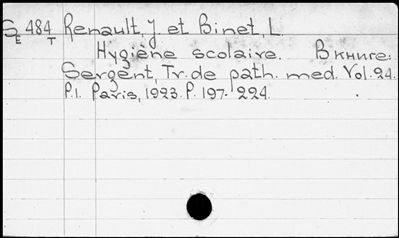 S 484 Renault, J. et Binet, L.
E T
Hygiène scolaire. В книге:
Sergent, Tr. de path. med. Vol. 24.
P.1. Paris, 1923. P. 197-224.